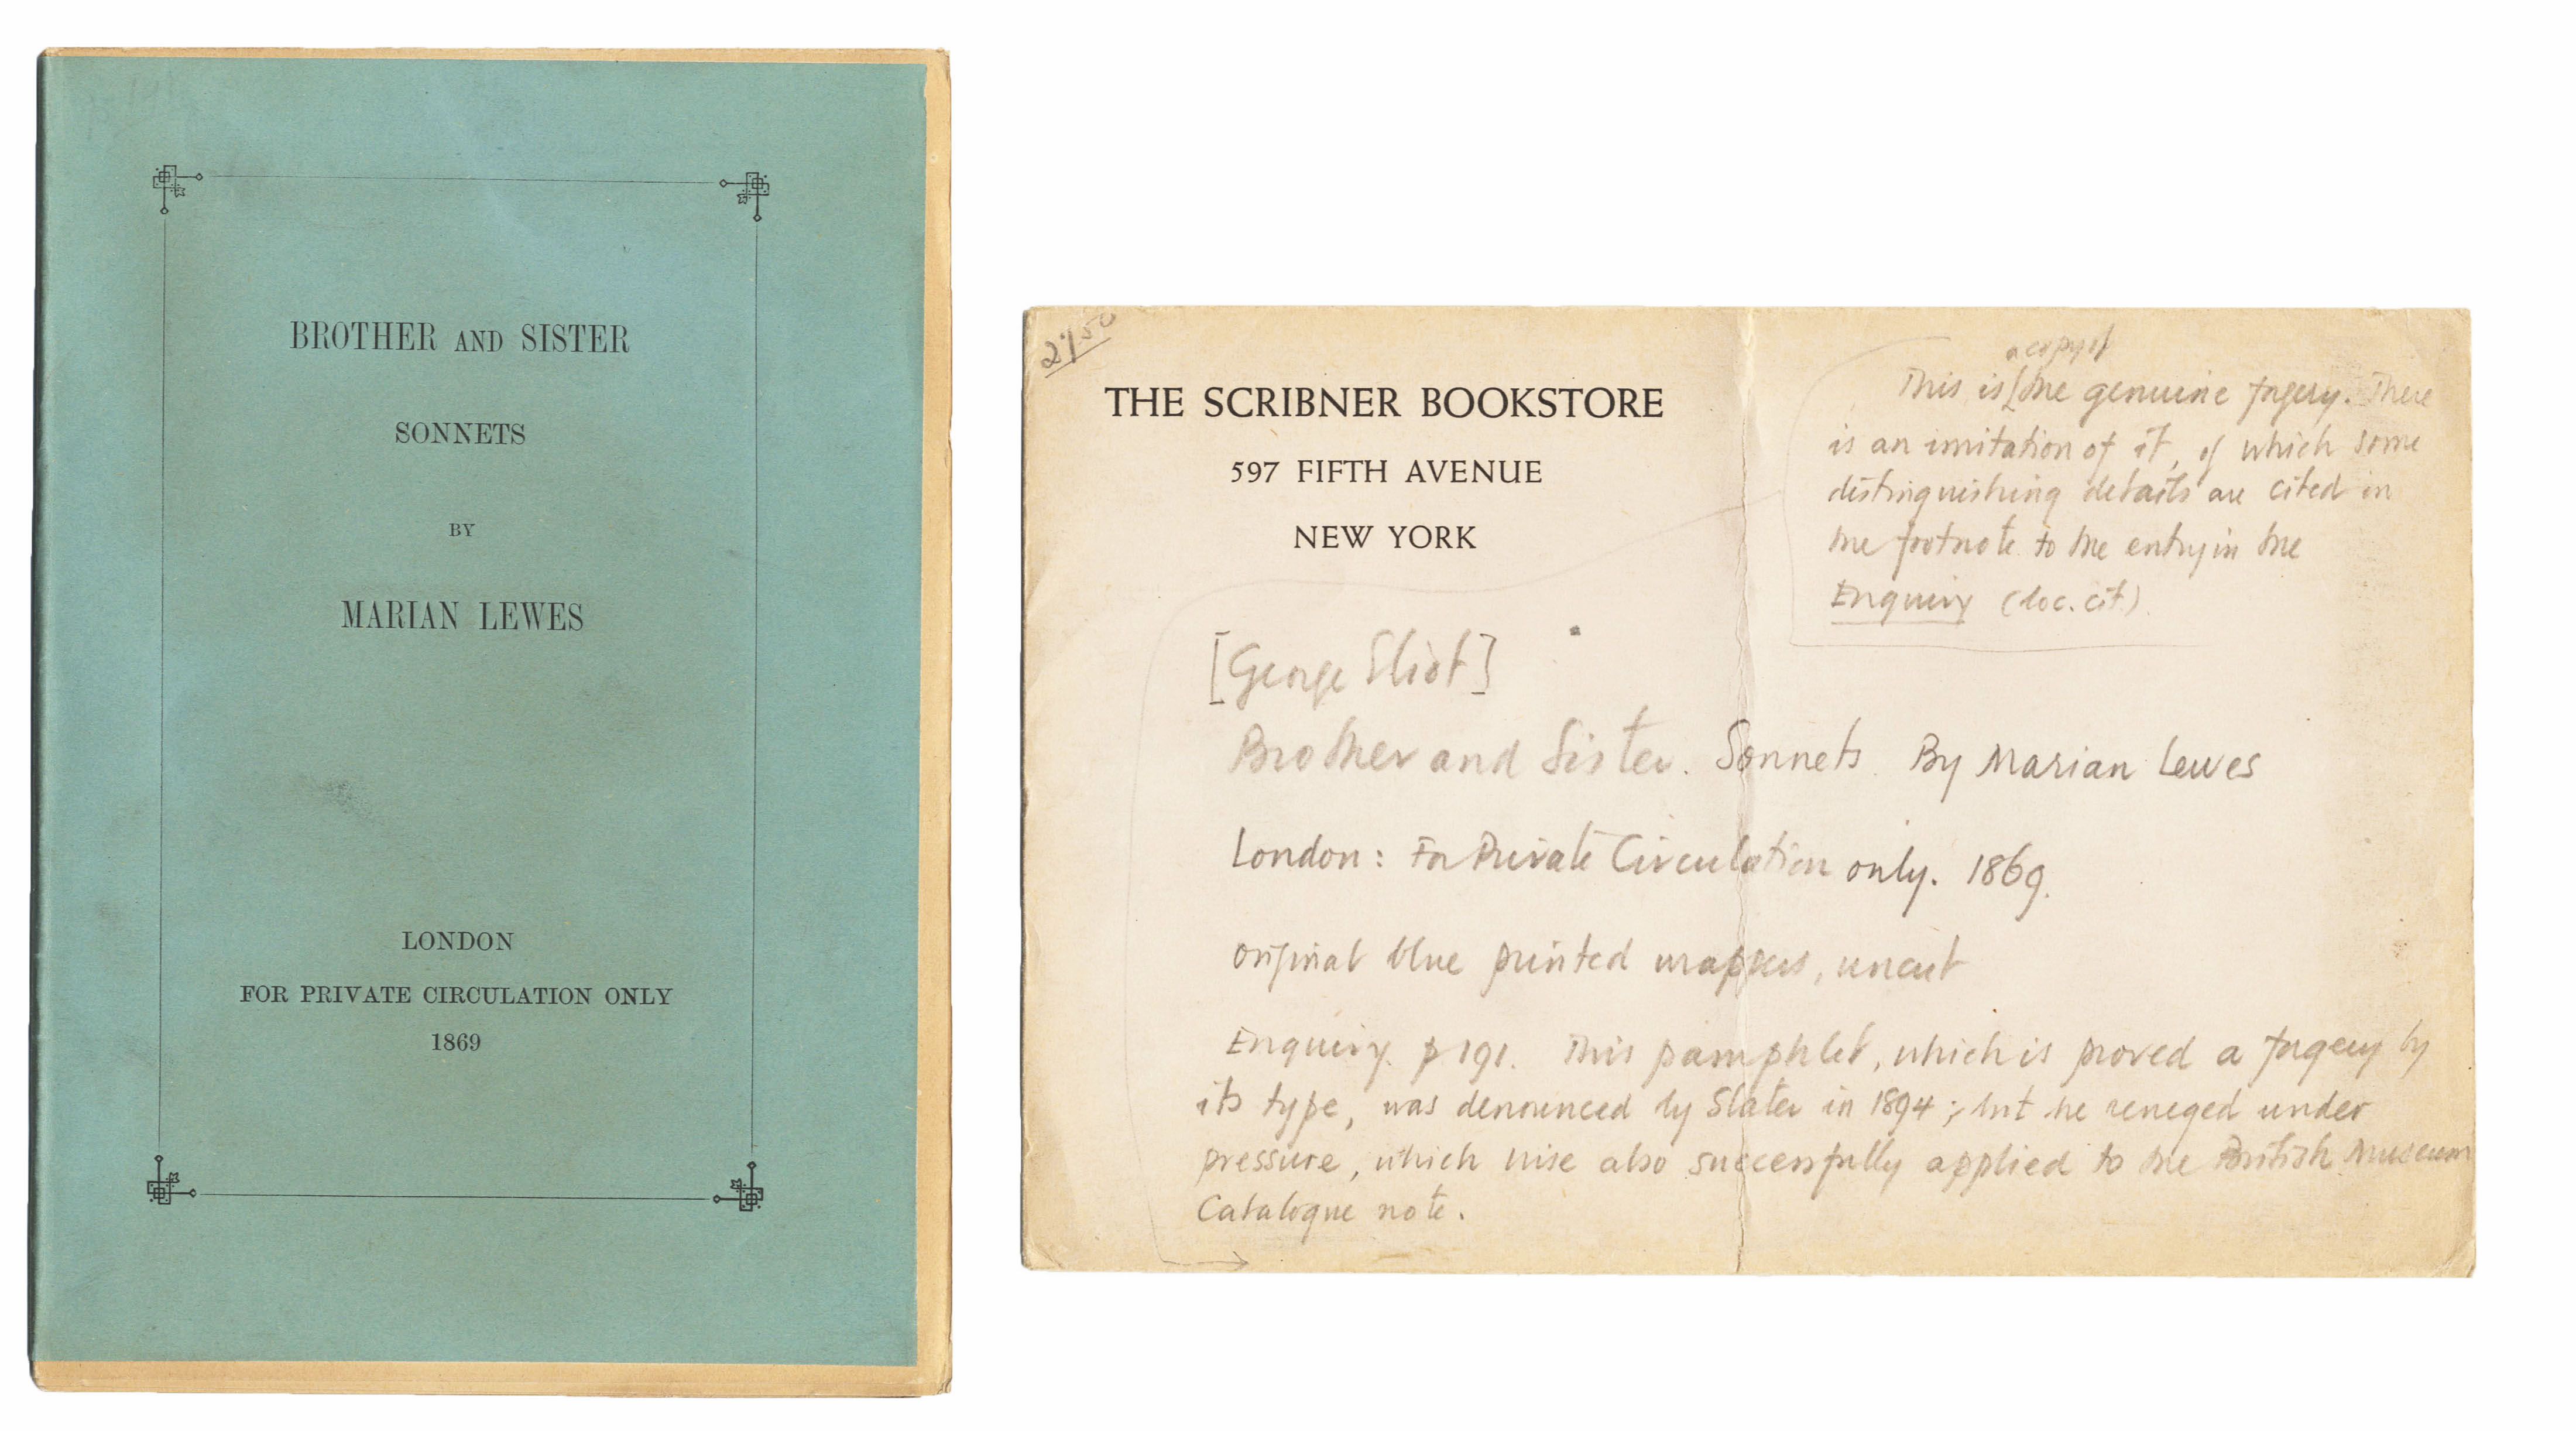 BROTHER AND SISTER
SONNETS
BY
MARIAN LEWES
LONDON
FOR PRIVATE CIRCULATION ONLY
1869
THE SCRIBNER BOOKSTORE
597 FIFTH AVENUE
NEW YORK
a copy of
This is [the genuine forgery. There
is an imitation of it, of which some
distinguishing details are cited in
the footnote to the entry in the
Enquiry (loc. cit).
[George Eliot]
Brother and Sister. Sonnets. By Marian Lewes
London: For Private Circulation only. 1869.
original blue printed wrappers, uncut
Enquiry. p 191. This pamphlet, which is proved a forgery by
its type, was denounced by Slater in 1894; but he reneged under
pressure, which Wise also successfully applied to the British Museum
Catalogue note.